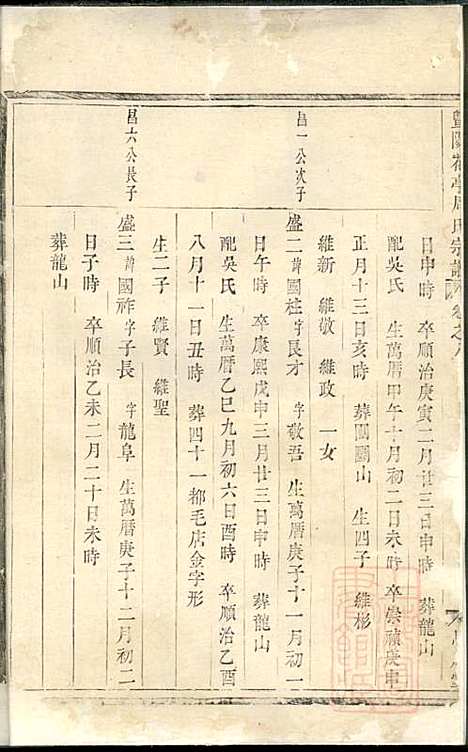 暨陽花亭周氏宗譜 卷之八
日申時 卒順治庚寅二月廿三日申時 葬龍山
配吳氏 生萬曆甲午十月初二日未時 卒崇禎庚申
正月十三日亥時 葬團圓山 生四子 維彬
維新 維敬 維政 一女
昌一公次子
盛二諱國柱字長才 字敬吾 生萬曆庚子十一月初一
日午時 卒康熙戊申三月廿三日申時 葬龍山
配吳氏 生萬曆乙巳九月初六日酉時 卒順治乙酉
八月十一日丑時 葬四十一都毛店金字形
生二子 維賢 維聖
昌六公長子
盛三諱國祚字子長 字龍阜 生萬曆庚子十二月初二
日子時 卒順治乙未二月二十日未時
葬龍山